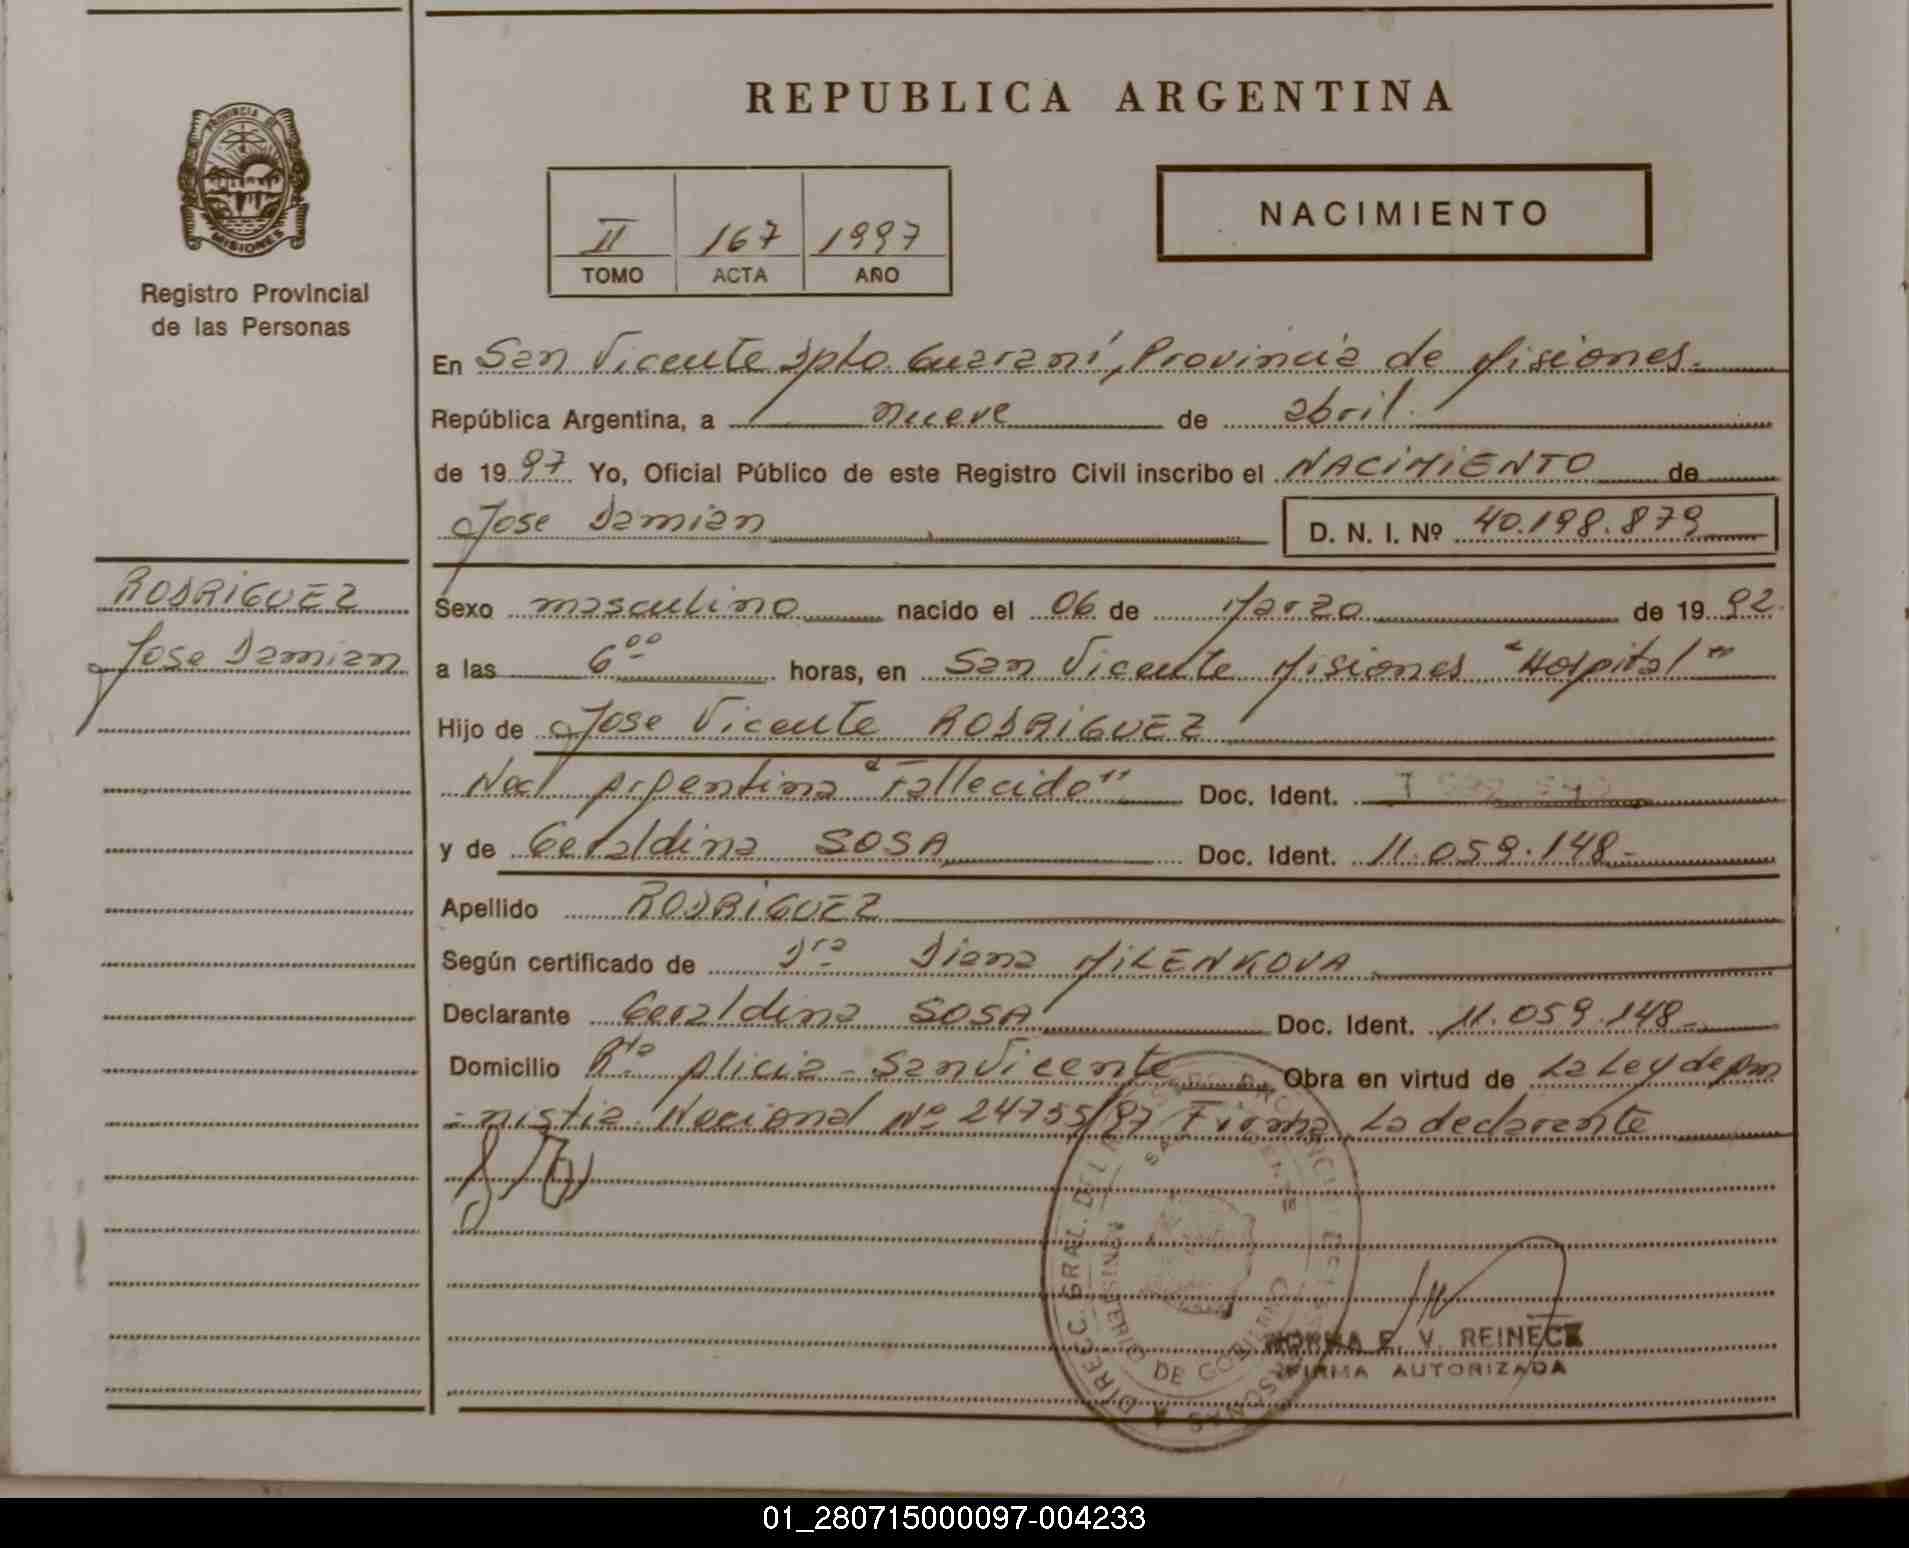 REPUBLICA ARGENTINA
PROVINCIA DE
MISIONES
Registro Provincial
de las Personas
II 167 1997
TOMO ACTA AÑO
NACIMIENTO
En San Vicente Dpto. Guaraní, Provincia de Misiones.
República Argentina, a nueve de abril.
de 1997 Yo, Oficial Público de este Registro Civil inscribo el NACIMIENTO de
Jose Damian D. N. I. Nº 40.198.879
RODRIGUEZ
Jose Damian
Sexo masculino nacido el 06 de Marzo de 1992.
a las 6⁰⁰ horas, en San Vicente Misiones "Hospital"
Hijo de Jose Vicente RODRIGUEZ
Nacl Argentina "Fallecido" Doc. Ident.
y de Geraldina SOSA Doc. Ident. 11.059.148-
Apellido RODRIGUEZ
Según certificado de Dra Diana MILENKOVA
Declarante Geraldina SOSA Doc. Ident. 11.059.148-
Domicilio Rta. Alicia - San Vicente Obra en virtud de La Ley de Am
-nistia Nacional Nº 24755/97 Firma La declarante
DIREC. GRAL. DEL
SAN VICENTE
MINISTERIO DE GOBIERNO
NORMA E. V. REINECK
FIRMA AUTORIZADA
01_280715000097-004233